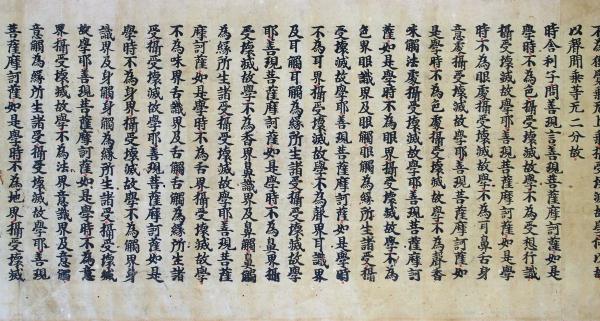 以聲聞乗等无二分故
時舍利子問善現言善現菩薩摩訶薩如是
學時不為色攝受壞滅故學不為受想行識
攝受壞滅故學耶善現菩薩摩訶薩如是學
時不為眼處攝受壞滅故學不為耳鼻舌身
意處攝受壞滅故學耶善現菩薩摩訶薩如
是學時不為色處攝受壞滅故學不為聲香
味觸法處攝受壞滅故學耶善現菩薩摩訶
薩如是學時不為眼界攝受壞滅故學不為
色界眼識界及眼觸眼觸為緣所生諸受攝
受壞滅故學耶善現菩薩摩訶薩如是學時
不為耳界攝受壞滅故學不為聲界耳識界
及耳觸耳觸為緣所生諸受攝受壞滅故學
耶善現菩薩摩訶薩如是學時不為鼻界攝
受壞滅故學不為香界鼻識界及鼻觸鼻觸
為緣所生諸受攝受壞滅故學耶善現菩薩
摩訶薩如是學時不為舌界攝受壞滅故學
不為味界舌識界及舌觸舌觸為緣所生諸
受攝受壞滅故學耶善現菩薩摩訶薩如是
學時不為身界攝受壞滅故學不為觸界身
識界及身觸身觸為緣所生諸受攝受壞滅
故學耶善現菩薩摩訶薩如是學時不為意
界攝受壞滅故學不為法界意識界及意觸
意觸為緣所生諸受攝受壞滅故學耶善現
菩薩摩訶薩如是學時不為地界攝受壞滅